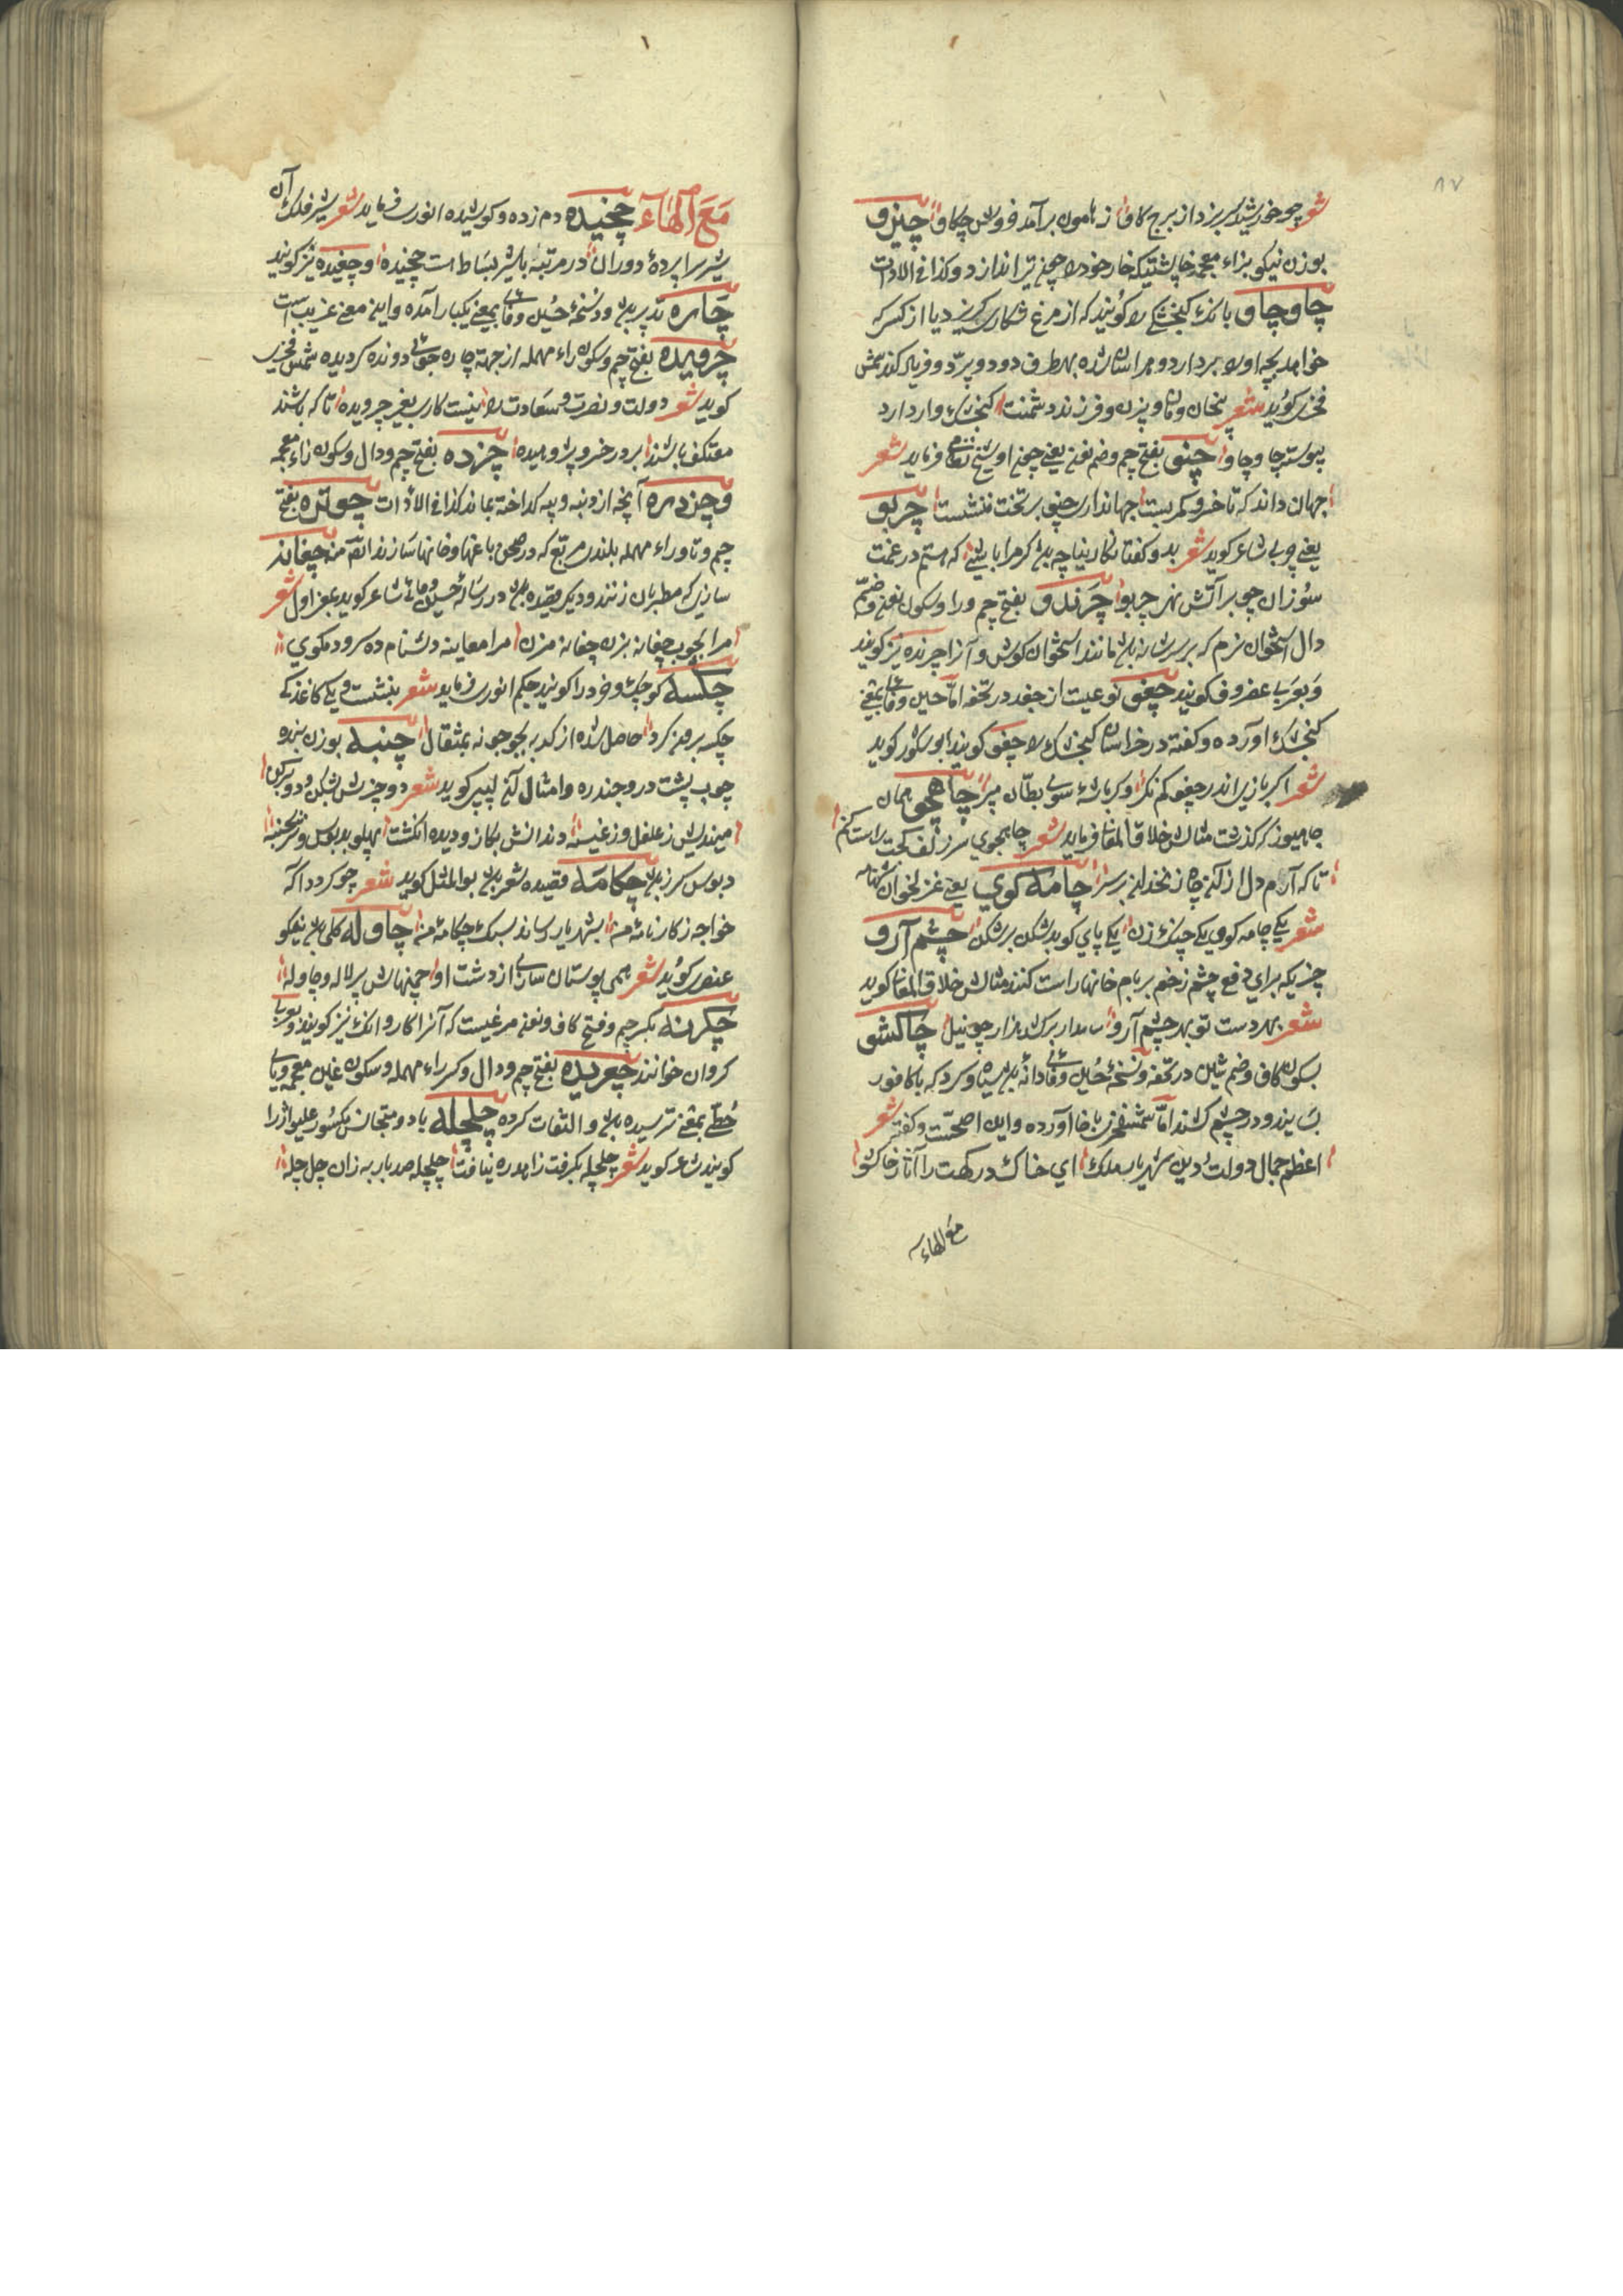 ۸۷
شعر چو خورشید سر برزد از برج کاو ز هامون برآمد خروش چکاو چیزو
بوزن نیکو بزاء معجمه خارپشتیکه خار خودرا چون تیر اندازد و کذا فی الادات
چاو چاو بانک کنجشکی را کویند که از مرغ شکاری کریزد یا از کسی که
خواهد بچه او را بردارد و هراسان شده بهر طرف دود و پرد و فریاد کند شمس
فخری کوید شعر بخان ومان و بزن و فرزند دشمنت کنجشک وار دارد
پیوسته چاو چاو چنو بفتح چیم وضم نون یعنی چون او شیخ نظامی فرماید شعر
جهان داند که تا خسرو کمر بست جهانداری چنو بر تخت ننشست چربو
یعنی چربی شاعر کوید شعر بدو کفتا نکارینا چه بد کرمرا باشی که هستم در غمت
سوزان چو بر آتش نهی چربو چرندو بفتح چیم ورا وسکون نون وضم
دال استخوان نرم که بر سر شانه باشد مانند استخوان کوش و آنرا چرنده نیز کویند
وبعربی غضروف کویند چغو نوعیست از جغد در تحفه اما حسین وفائی بمعنی
کنجشک آورده وکفته در خراسان کنجشک را چغو کویند ابو شکور کوید
شعر اکر بازی اندر چغو کم نکر وکر باشۀ سوی بطان مپر چاهجو همان
چاهیوز که کذشت مثالش خلاق المعانی فرماید شعر چاهجوی سر زلف کجت راست کنم
تا که آرم دل از آن چاه زنخدان برسر چامه کوی یعنی غزلخوان شهنامه
شعر یکی چامه کوی یکی چنک زن یکی پای کوبد شکن بر شکن چشم آرو
چیزیکه برای دفع چشم زخم بر بام خانها راست کنند مثالش خلاق المعانی کوید
شعر بهر دست تو بهر چشم آرو نامدار برکشد هزار چو نیل چاکشو
بسکون کاف وضم شین در تحفه و نسخۀ حسین وفائی دانۀ باشد سیاه و کرد که با کافور
بسایند و در چشم کشند اما شمس فخری باخا آورده واین اصحست وکفته شعر
اعظم جمال دولت ودین شهریار ملک ای خاک درکهت را آثار خاکشو
مع الهاء
مَعَ الهَآء چخیده دم زده و کوشیده انوری فرماید شعر شیر فلک آن
شیر سراپردۀ دوران در مرتبه با شیر بساط است چخیده وچغیده نیز کویند
چاره تدبیر باشد ودر نسخۀ حسین وفائی بمعنی یکبار آمده واین معنی غریب است
چرویده بفتح چیم وسکون راء مهمله از جهة چاره جوئی دونده کردیده شمس فخری
کوید شعر دولت ونصرت وسعادت را نیست کاری بغیر چرویده تا که باشند
معتکف باشند بر در خسرو پژوهیده چزده بفتح چیم ودال وسکون زاء معجمه
وچزدره آنچه از دنبه وپیه کداخته بماند کذا فی الادات چوتره بفتح
چیم وتا وراء مهمله بلندی مربع که در صحن باغها وخانها سازند انتهی منه چغانه
سازی که مطربان زنند ودیکر قصیده باشد در رسالۀ حسین وفائی شاعر کوید بمعنی اول شعر
مرا بچوب چغانه بزن چغانه مزن مرا معاینه دشنام ده سرود مکوی
چکسه کوچک وخرد را کویند حکیم انوری فرماید شعر بنشست و یکی کاغذکی
چکسه برون کرد حاصل شده از کدیه بجوجو نه بمثقال چنبه بوزن بنده
چوب پشت در وجندره وامثال آن لبیبی کوید شعر دو چیزش بشکن و دو برکن
میندیش ز غلغل وز غنبه دندانش بکاز ودیده انکشت پهلو بدبوس وسر بچنبه
دبوس کرز باشد چکامه قصیده شعر باشد بوالمثل کوید شعر چو کردد آکه
خواجه ز کارنامۀ من بشهریار رساند سبک چکامۀ من چاوله کلی باشد نیکو
عنصری کوید شعر همی بوستان سازی از دشت او چمنهاش پر لاله و چاوله
چکرنه بکسر چیم وفتح کاف ونون مرغیست که آنرا کاروانک نیز کویند وبعربی
کروان خوانند چغریده بفتح چیم ودال وکسر راء مهمله وسکون غین معجمه ویای
حطی بمعنی ترسیده باشد و التفات کرده چلچله با دو متجانس مکسور غلیواژ را
کویند شاعر کوید شعر چلچله بکرفت زاهد ره نیافت چلچله صد بار به زان چل چله